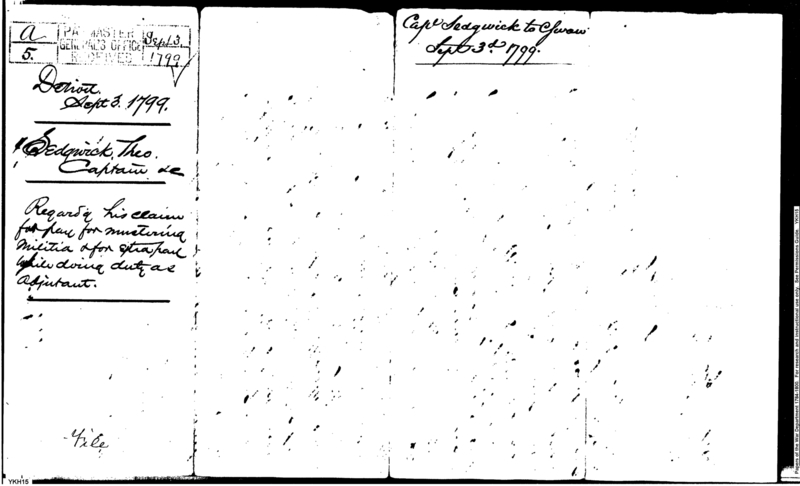 a
5.
PAYMASTER
GENERAL'S OFFICE
RECEIVED
Sept 3
1799
Detroit.
Sept 3. 1799.
Sedgwick, Theo.
Captain &c
Regard'g his claim
for pay for mustering
Militia & for extra pay
while doing duty as
Adjutant.
File
Capt Sedgwick to
Sept 3d 1799.
YKH15
Papers of the War Department 1784-1800. For research and instructional use only. See Permissions Guide. YKH15